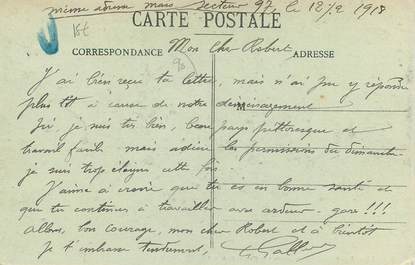 même adresse mais secteur 97, le 12/2 1918
15f
CARTE POSTALE
CORRESPONDANCE
ADRESSE
Mon cher Robert
J'ai bien reçu ta lettre, mais n'ai pu y répondre
plus tôt à cause de notre déménagement
M
Ici je suis très bien, beau pays pittoresque et
travail facile. mais adieu les permissions du dimanche
je suis trop éloigné cette fois.
J'aime à croire que tu es en bonne santé et
que tu continues à travailler avec ardeur - gare!!!
allons, bon courage, mon cher Robert et à bientôt
Je t'embrasse tendrement,